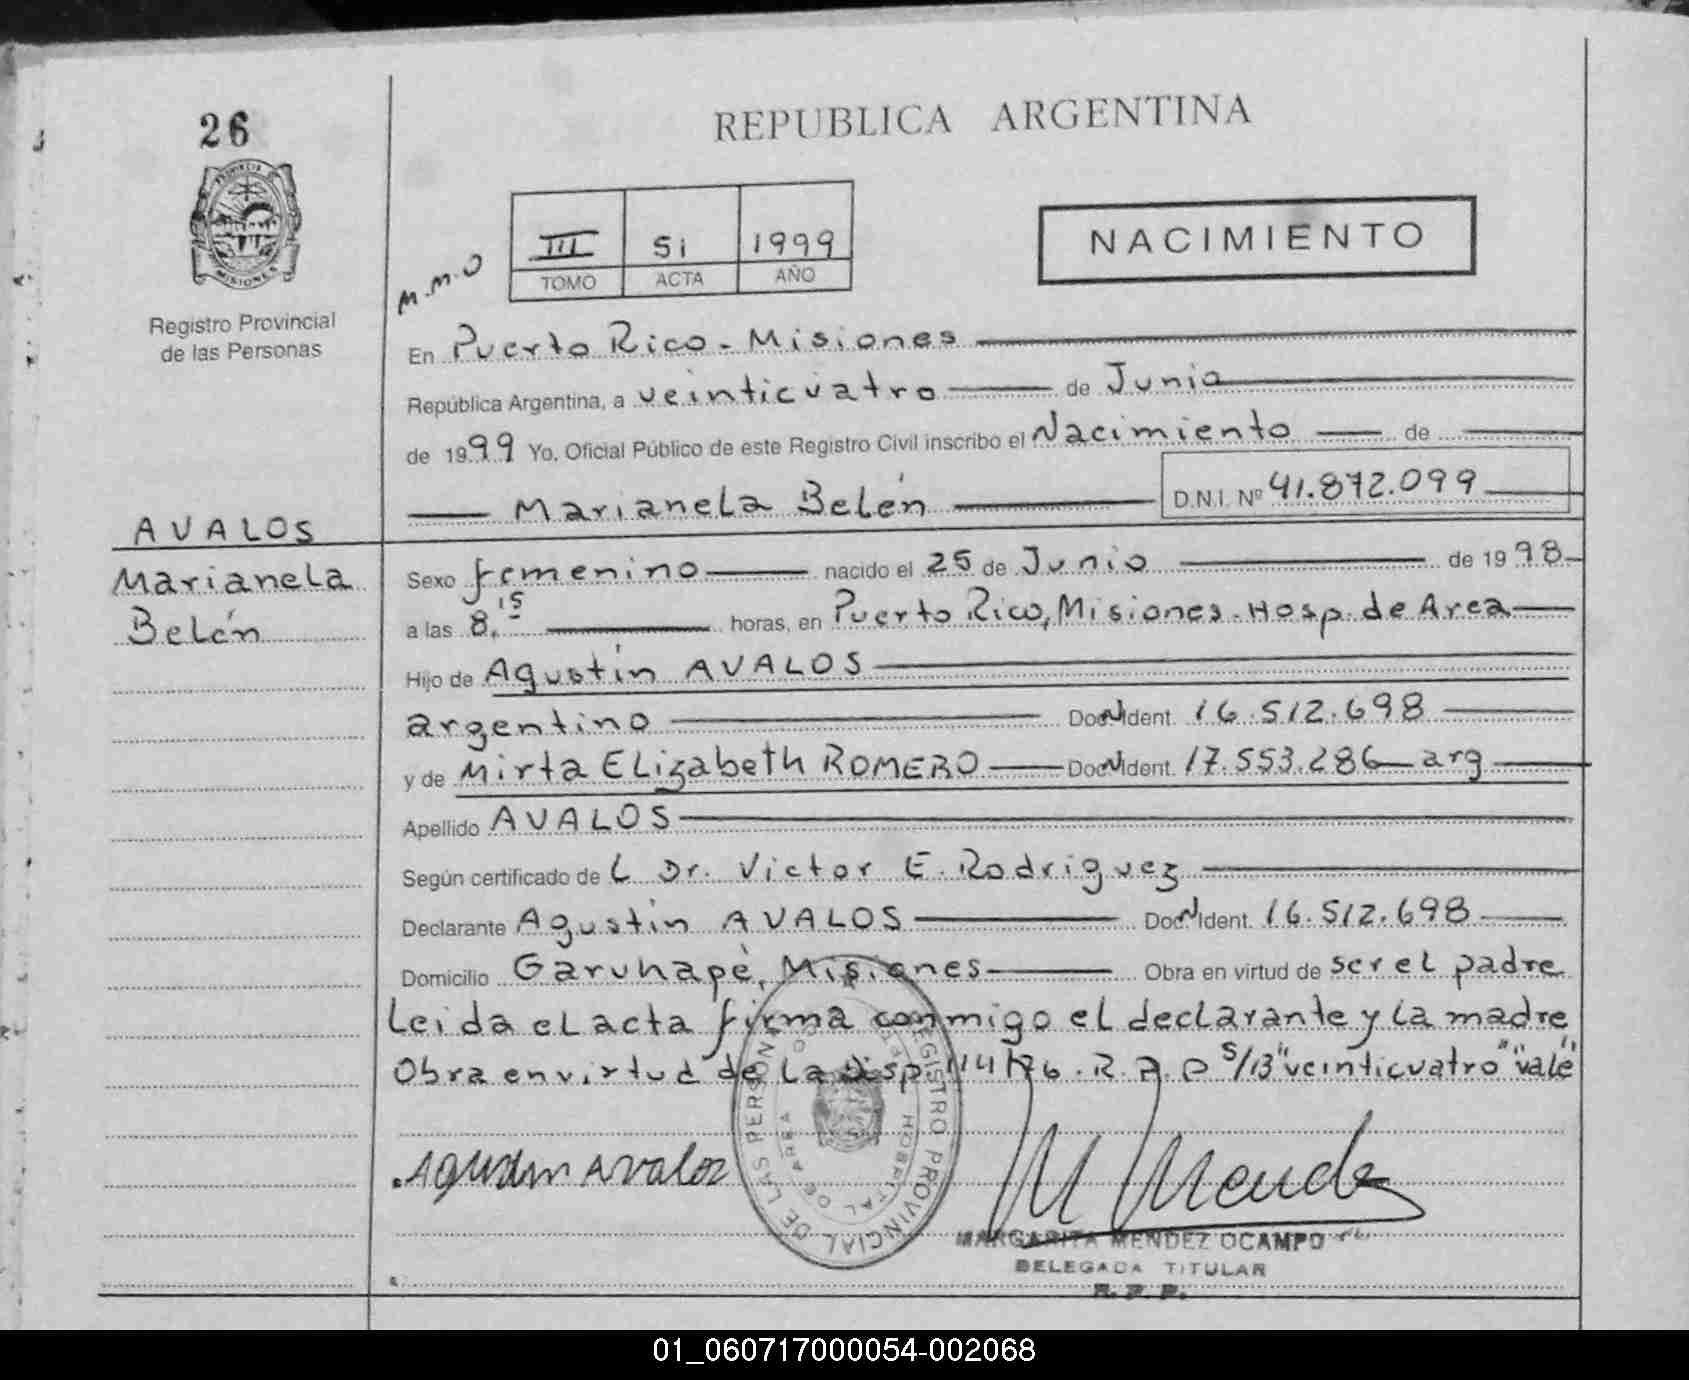 26
REPUBLICA ARGENTINA
PROVINCIA DE
MISIONES
III 51 1999
TOMO ACTA AÑO
NACIMIENTO
M.M.O
Registro Provincial
de las Personas
En Puerto Rico - Misiones
República Argentina, a veinticuatro de Junio
de 1999 Yo, Oficial Público de este Registro Civil inscribo el Nacimiento de
Marianela Belén D.N.I. Nº 41.872.099
AVALOS
Marianela
Belén
Sexo femenino nacido el 25 de Junio de 1998
a las 8.15 horas, en Puerto Rico, Misiones - Hosp. de Area
Hijo de Agustín AVALOS
argentino Doc N Ident. 16.512.698
y de Mirta Elizabeth ROMERO Doc N Ident. 17.553.286 arg
Apellido AVALOS
Según certificado de L Dr. Victor E. Rodriguez
Declarante Agustin AVALOS Doc N Ident. 16.512.698
Domicilio Garuhapé, Misiones Obra en virtud de ser el padre
Leida el acta firma conmigo el declarante y la madre
Obra en virtud de La Disp 114/76. R.P.P S/B "veinticuatro" "vale"
REGISTRO PROVINCIAL DE LAS PERSONAS
HOSPITAL DE AREA
Agustin Avalos
M Mendez
MARGARITA MENDEZ OCAMPO
DELEGADA TITULAR
R. P. P.
01_060717000054-002068